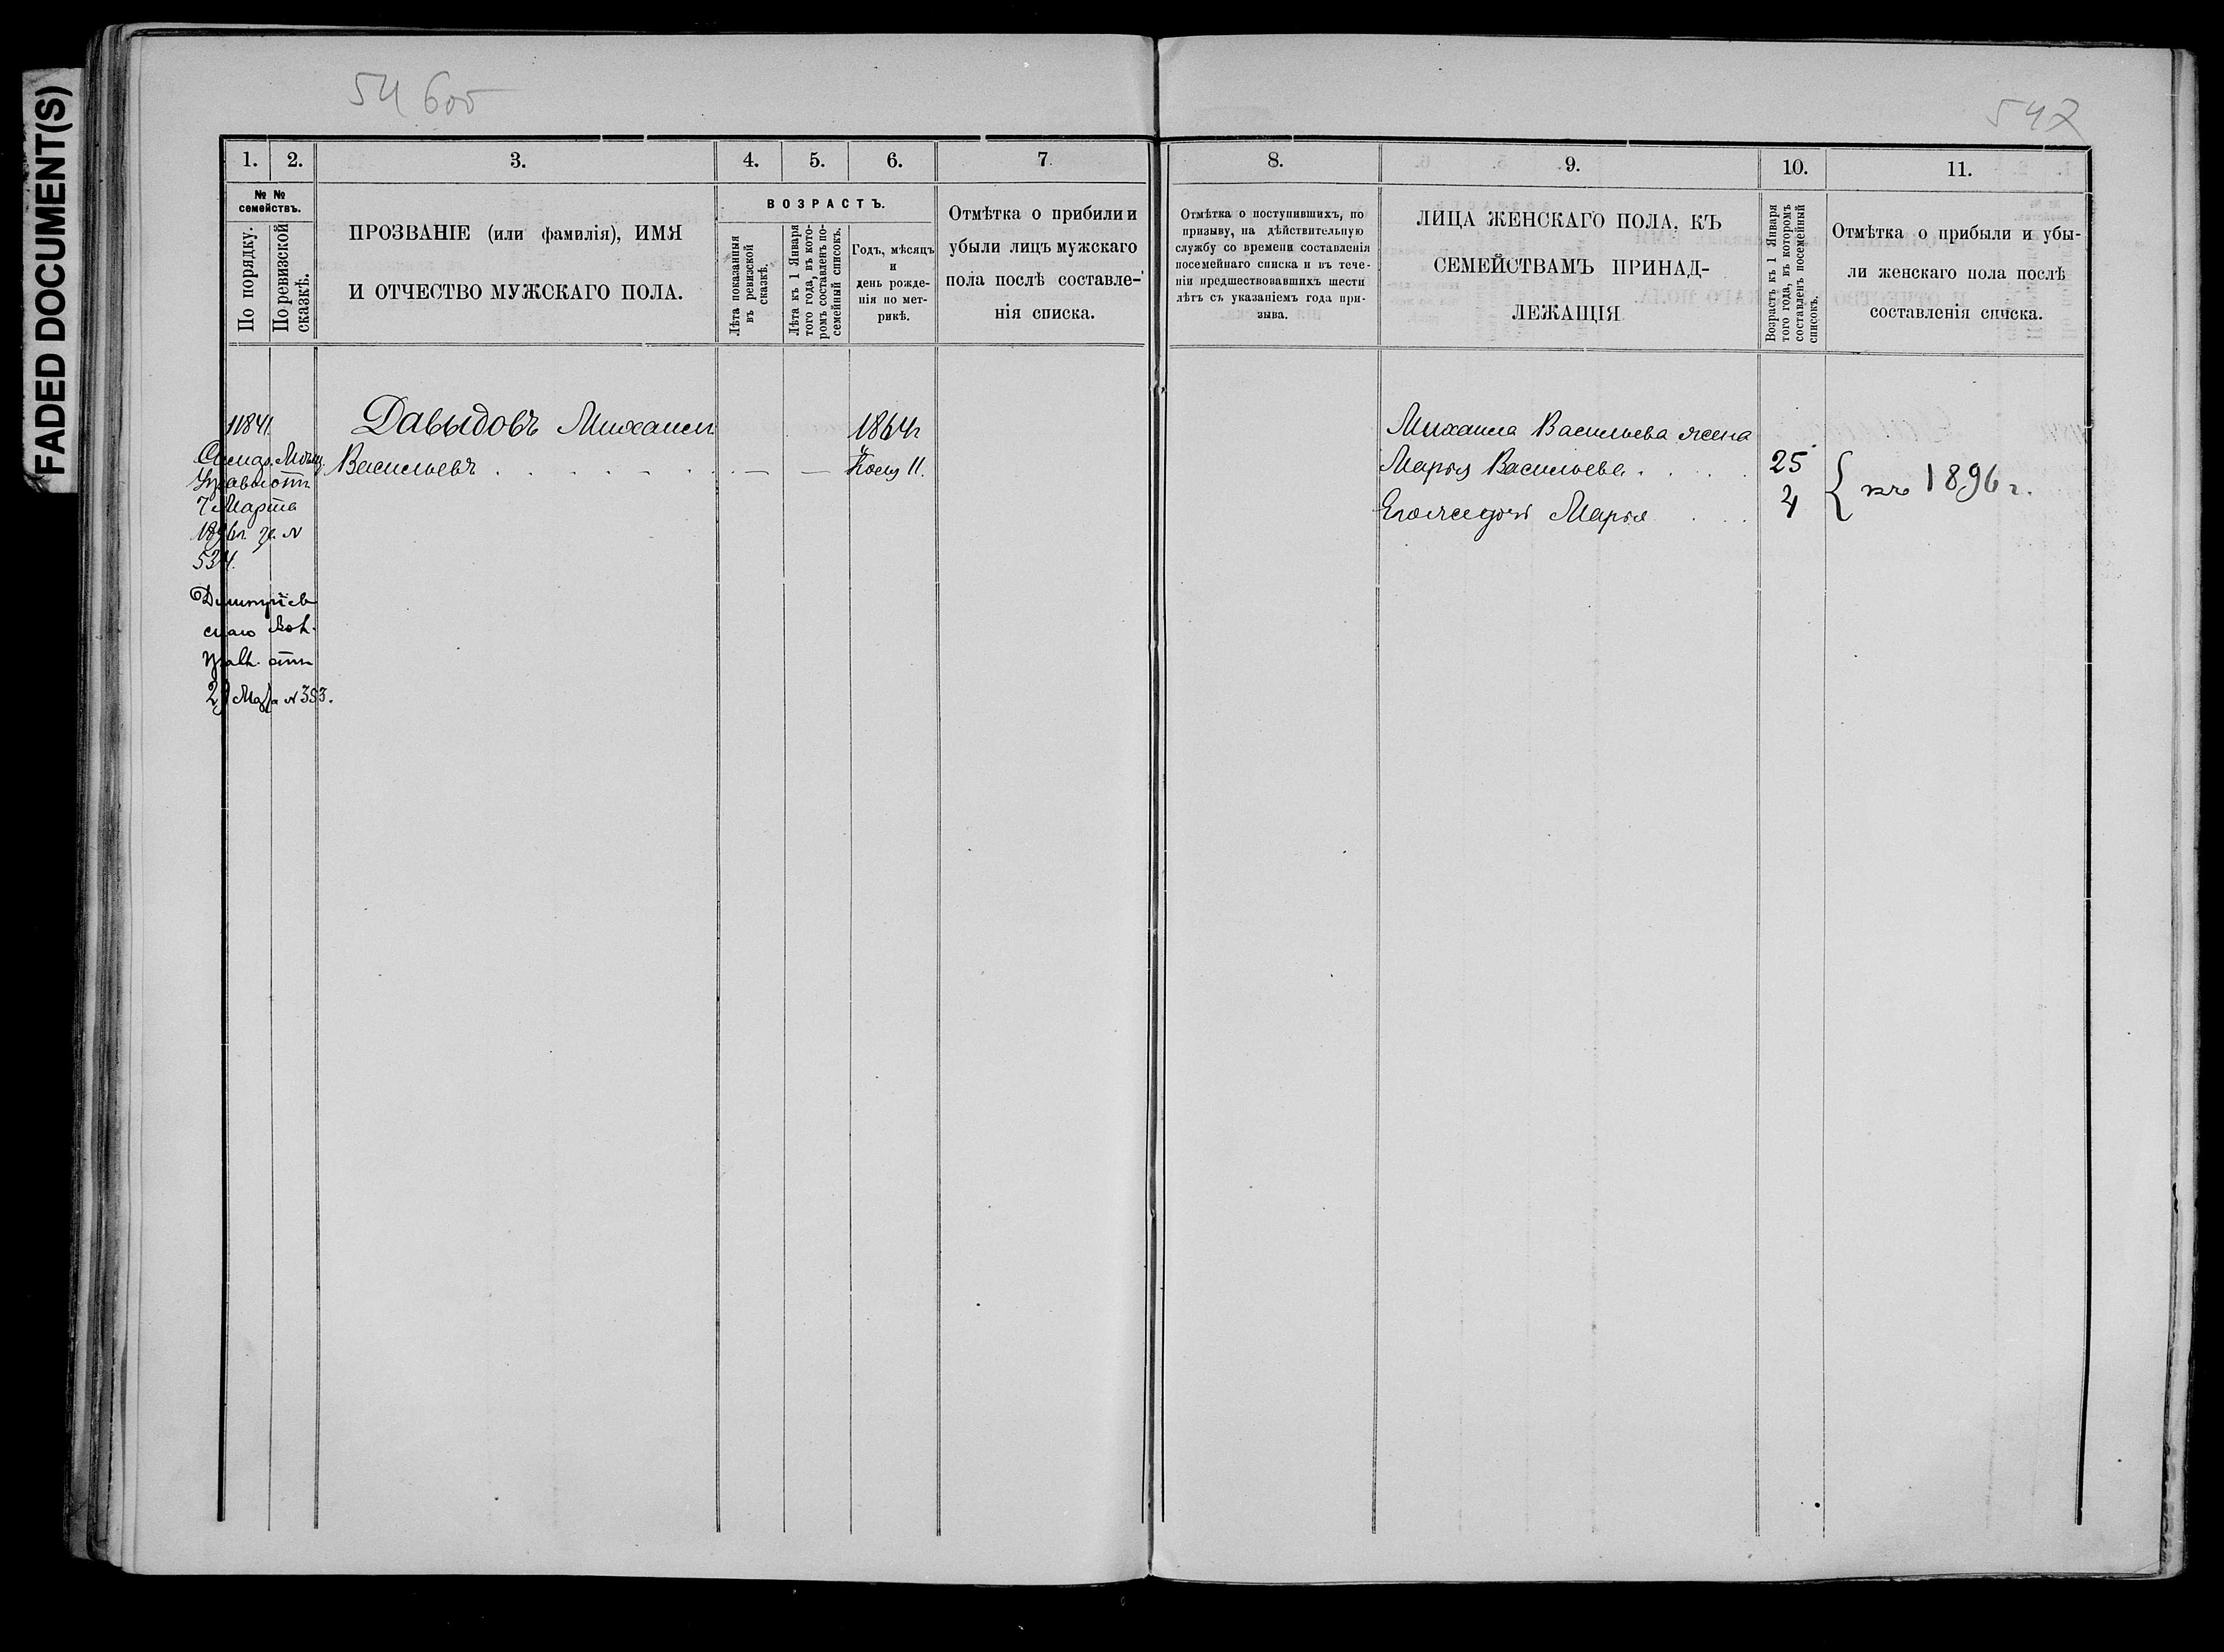 FADED DOCUMENT(S)
54 боб
547
1. 2. 3. 4. 5. 6. 7.
№ №
семействъ.
По порядку.
По ревизской
сказкѣ.
ПРОЗВАНІЕ (или фамилія), ИМЯ
И ОТЧЕСТВО МУЖСКАГО ПОЛА.
ВОЗРАСТЪ.
Лѣта показанныя
въ ревизской
сказкѣ.
Лѣта къ 1 Января
того года, въ кото-
ромъ составленъ по-
семейный списокъ.
Годъ, мѣсяцъ
и
день рожде-
нія по мет-
рикѣ.
Отмѣтка о прибыли и
убыли лицъ мужскаго
пола послѣ составле-
нія списка.
11841.
Давыдовъ Михаилъ
Васильевъ
1864г
11.
Самар. Мѣщ.
Управы отъ
7 Марта
1896г. за №
534.
Димитріев
скаго Вол.
Правл. отъ
№ 383.
8. 9. 10. 11.
Отмѣтка о поступившихъ, по
призыву, на дѣйствительную
службу со времени составленія
посемейнаго списка и въ тече-
ніи предшествовавшихъ шести
лѣтъ съ указаніемъ года при-
зыва.
ЛИЦА ЖЕНСКАГО ПОЛА, КЪ
СЕМЕЙСТВАМЪ ПРИНАД-
ЛЕЖАЩІЯ
Возрастъ къ 1 Января
того года, въ которомъ
составленъ посемейный
списокъ.
Отмѣтка о прибыли и убы-
ли женскаго пола послѣ
составленія списка.
Михаила Васильева жена
Марья Васильева 25
Его же дочь Марья 4
къ 1896 г.